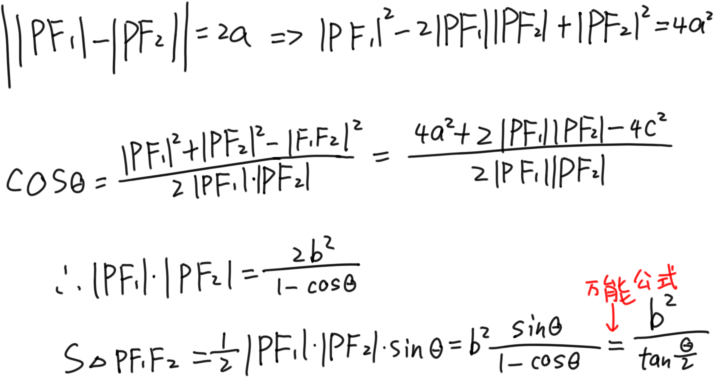 ||PF₁|-|PF₂||=2a => |PF₁|²-2|PF₁||PF₂|+|PF₂|²=4a²
cosθ = (|PF₁|²+|PF₂|²-|F₁F₂|²)/(2|PF₁|·|PF₂|) = (4a²+2|PF₁||PF₂|-4c²)/(2|PF₁||PF₂|)
∴ |PF₁|·|PF₂| = 2b²/(1-cosθ)
万能公式
S△PF₁F₂ = 1/2|PF₁|·|PF₂|·sinθ = b² sinθ/(1-cosθ) = b²/(tan θ/2)